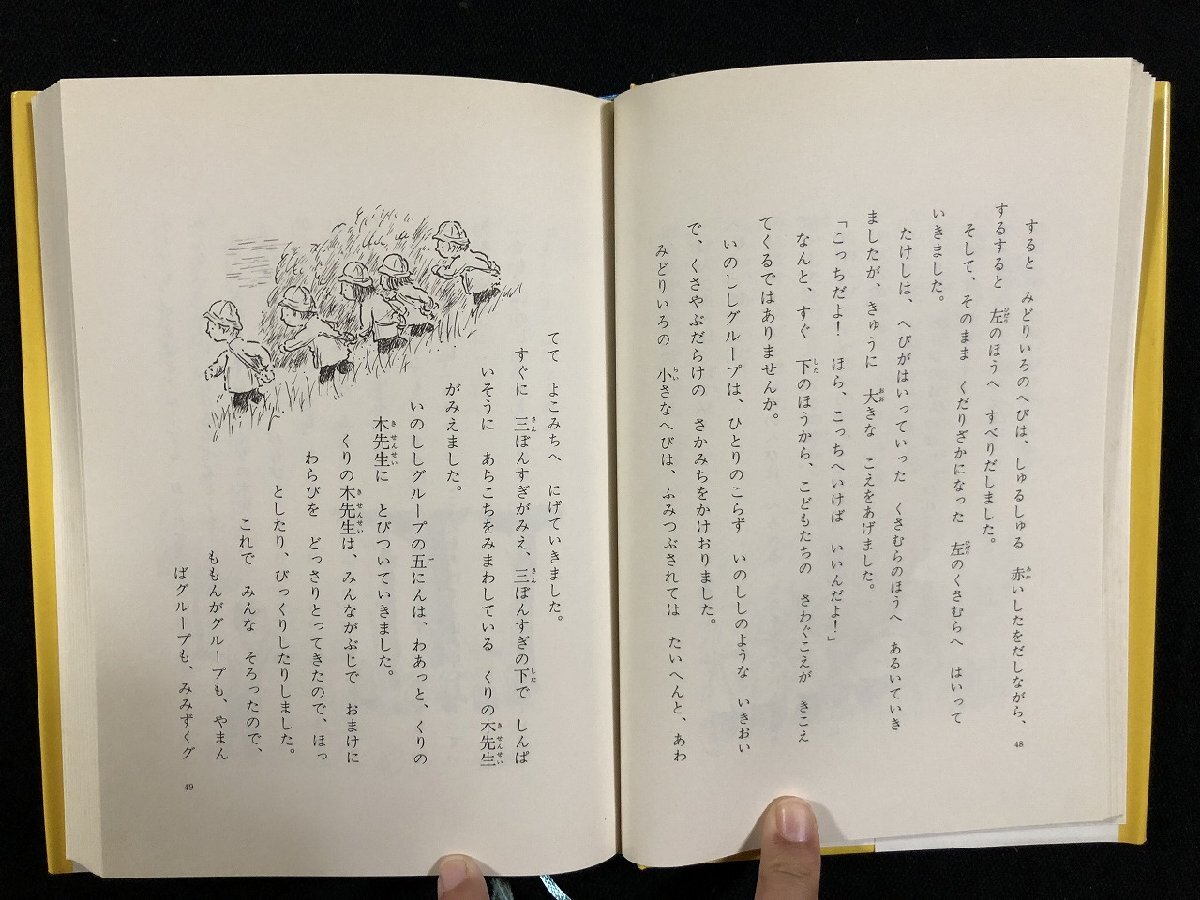 すると みどりいろのへびは、しゅるしゅる 赤いしたをだしながら、
するすると 左のほうへ すべりだしました。
そして、そのまま くだりざかになった 左のくさむらへ はいって
いきました。
たけしは、へびがはいっていった くさむらのほうへ あるいていき
ましたが、きゅうに 大きな こえをあげました。
「こっちだよ！ ほら、こっちへいけば いいんだよ！」
なんと、すぐ 下のほうから、こどもたちの さわぐこえが きこえ
てくるではありませんか。
いのししグループは、ひとりのこらず いのししのような いきおい
で、くさやぶだらけの さかみちをかけおりました。
みどりいろの 小さなへびは、ふみつぶされては たいへんと、あわ
48
てて よこみちへ にげていきました。
すぐに 三ぼんすぎがみえ、三ぼんすぎの下で しんぱ
いそうに あちこちをみまわしている くりの木先生
がみえました。
いのししグループの五にんは、わあっと、くりの
木先生に とびついていきました。
くりの木先生は、みんながぶじで おまけに
わらびを どっさりとってきたので、ほっ
としたり、びっくりしたりしました。
これで みんな そろったので、
ももんがグループも、やまん
ばグループも、みみずくグ
49